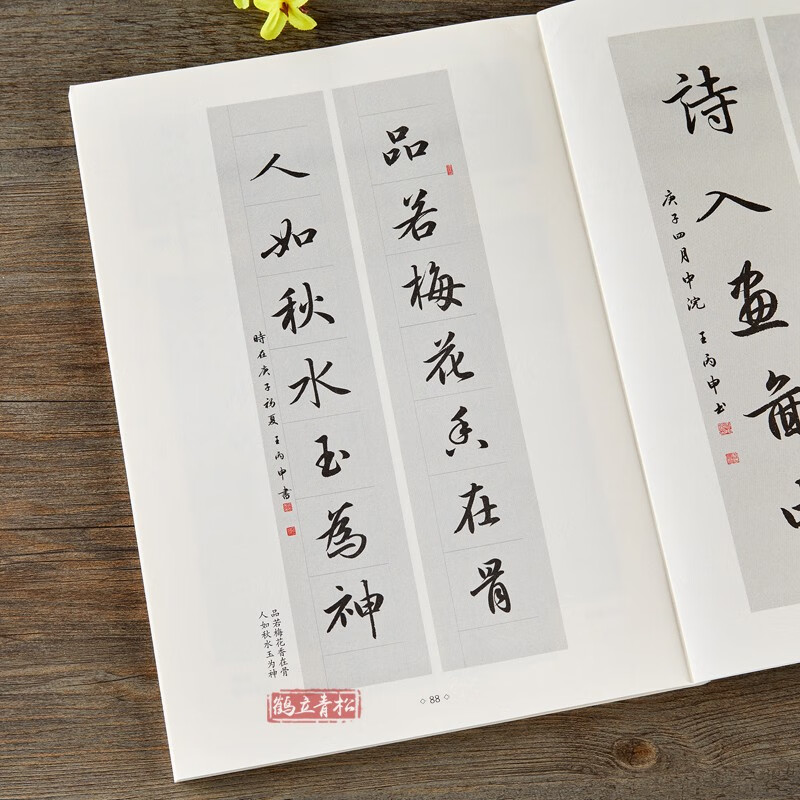 品若梅花香在骨
人如秋水玉為神
時在庚子初夏王丙申書
品若梅花香在骨
人如秋水玉为神
88
鹤立青松
詩入畫
庚子四月中浣王丙申书